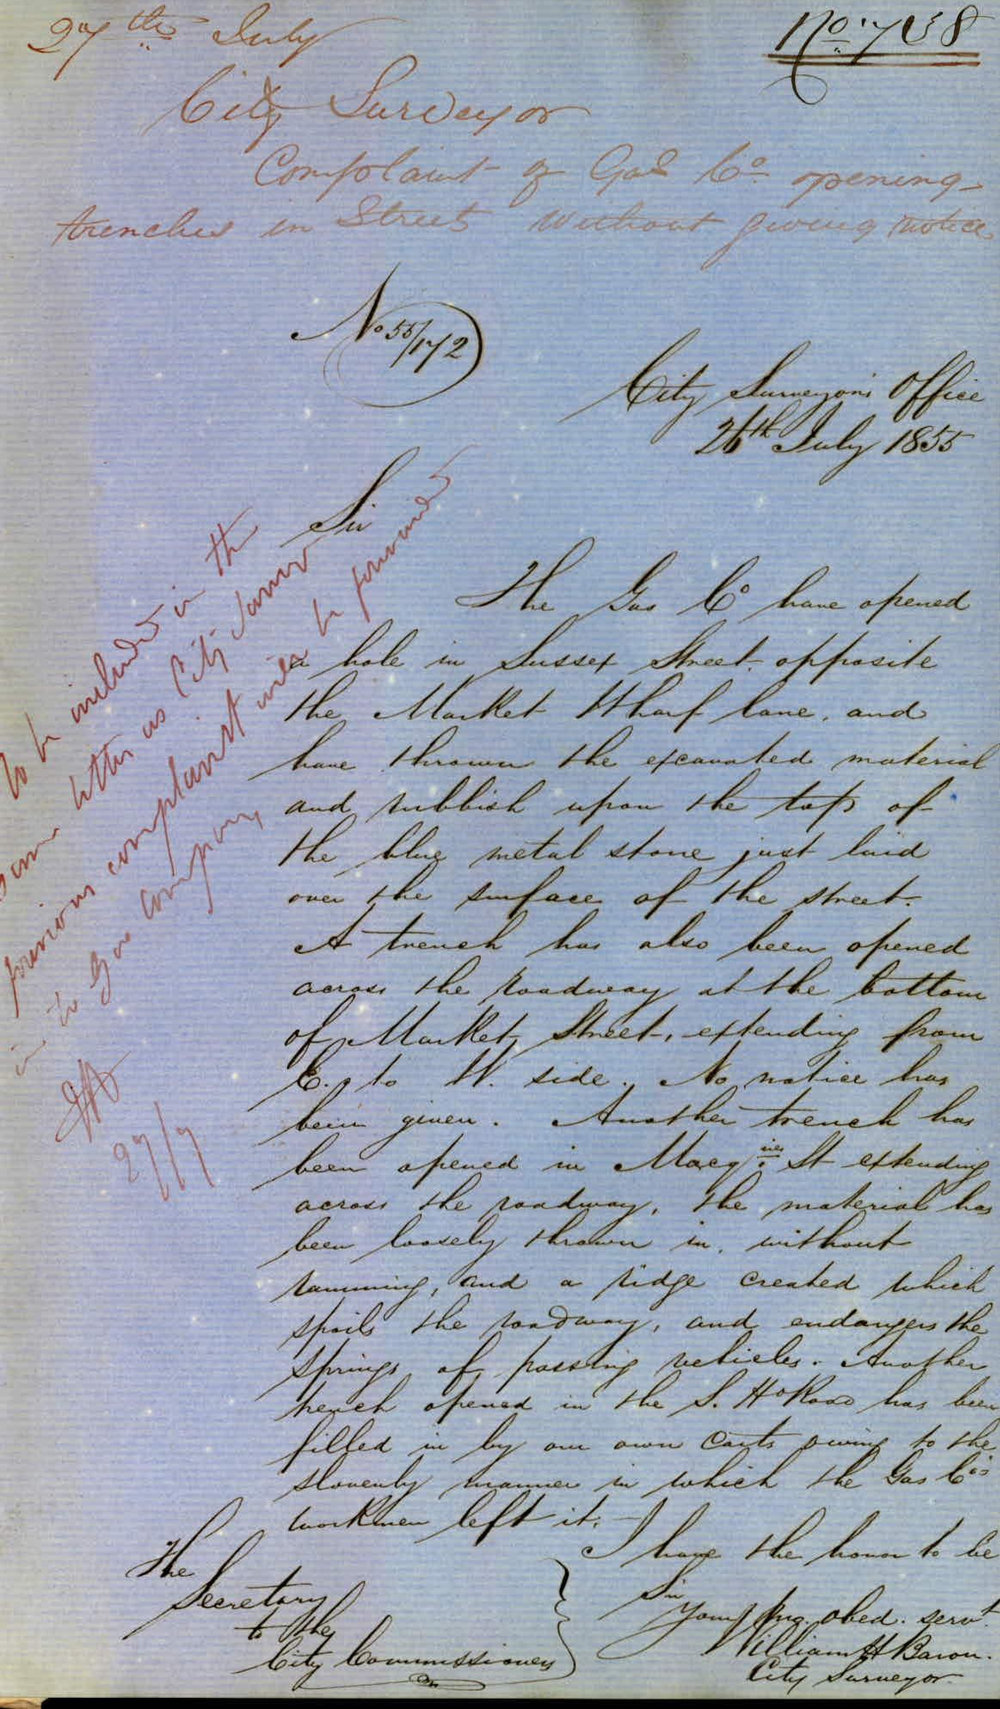 27th July
No. 738
City Surveyor
Complaint of Gas Co opening
trenches in Street without giving notice
No 55/172
City Surveyor's Office
26th July 1855
Sir
The Gas Co have opened
a hole in Sussex Street opposite
the Market Wharf lane, and
have thrown the excavated material
and rubbish upon the top of
the blue metal stone just laid
over the surface of the street.
A trench has also been opened
across the roadway at the bottom
of Market Street, extending from
E. to W. side. No notice has
been given. Another trench has
been opened in Macqies St extending
across the roadway, the material has
been loosely thrown in, without
ramming, and a ridge created which
spoils the roadway, and endangers the
springs of passing vehicles. Another
trench opened in the S. Ho Road has been
filled in by our own Carts owing to the
slovenly manner in which the Gas Co's
workmen left it. —
I have the honor to be
Sir
Your obed. servt.
William H Baron.
City Surveyor
The
Secretary
to the
City Commissioners
to be included in the
same letter as City
previous complaint will be forwarded
in to Gas Company
27/7